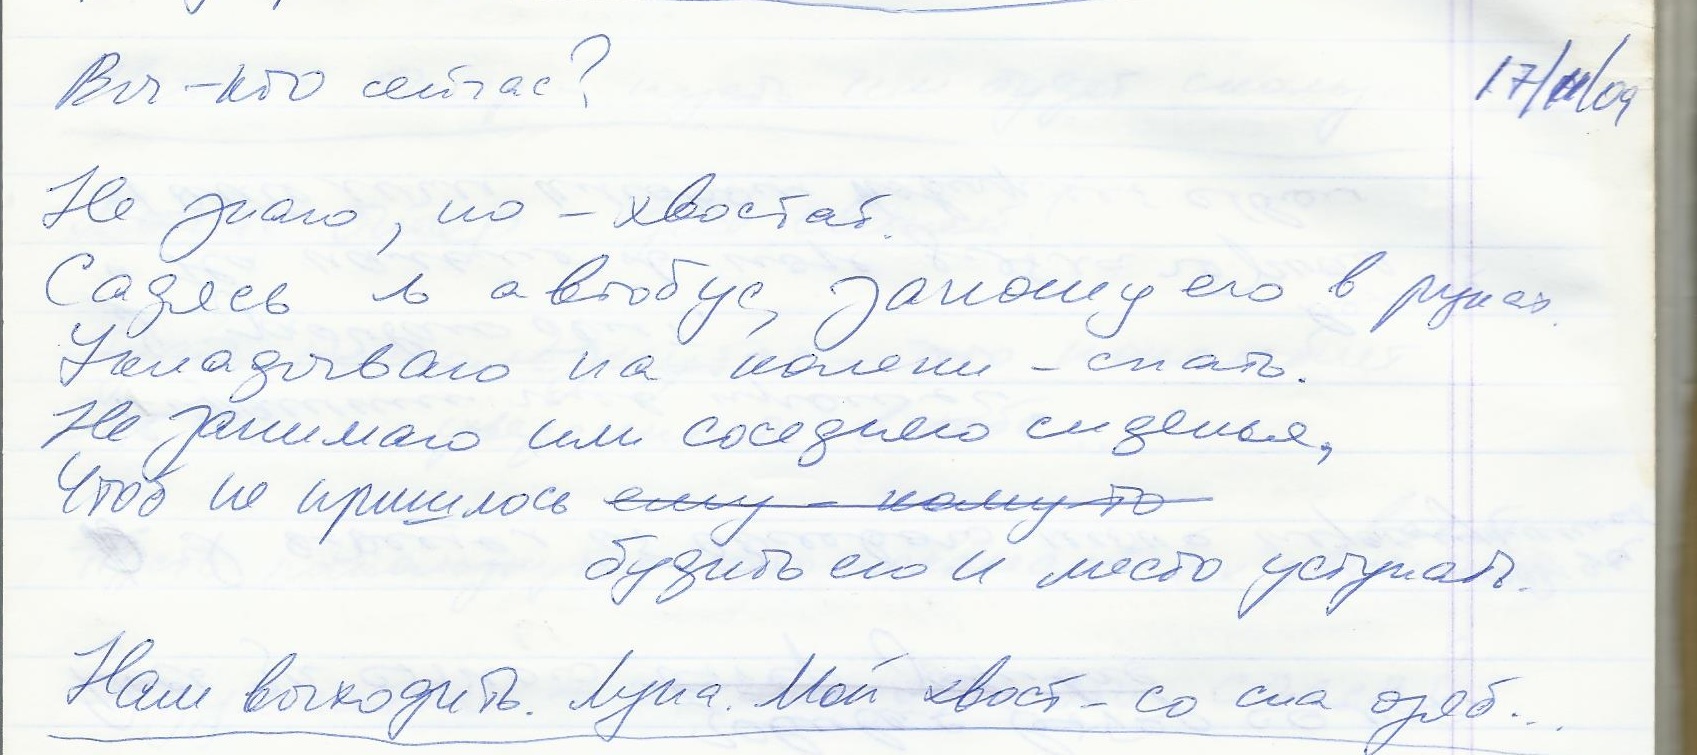 Вы - кто сейчас?
17/11/09
Не знаю, но - хвостат.
Садясь в автобус, заношу его в руках.
Укладываю на колени - спать.
Не занимаю им соседнего сиденья,
Чтоб не пришлось ему - кому-то
будить его и место уступать.
Нам выходить. Луна. Мой хвост - со сна озяб...